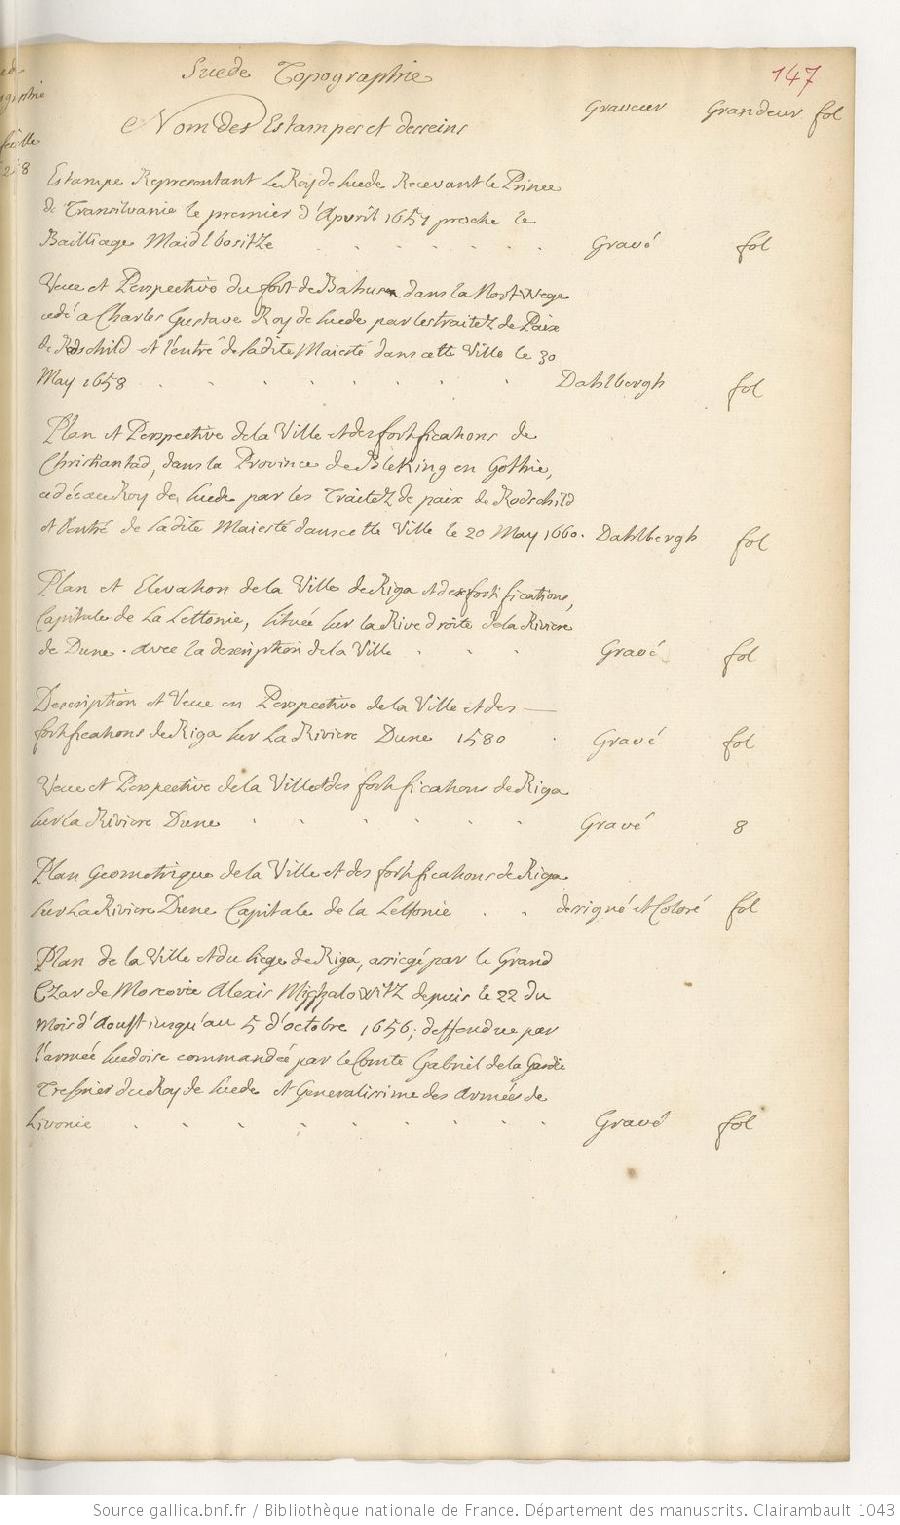 Suede Topographie
147
Nom des Estampes et desseins
Graveur Grandeur fol
Estampe Representant Le Roy de Suede Recevant le Prince
de Transilvanie le premier d'Apvril 1657 proche le
Bailliage Maidlbositze Gravé fol
Veue et Perspective du fort de Bahus dans la Nortwege
cedé a Charles Gustave Roy de Suede par les traitez de Paix
de Rodschild et l'entré de ladite Maiesté dans cette Ville le 30
May 1658 Dahlbergh fol
Plan et Perspective de la Ville et des fortifications de
Christianstad, dans la Province de Bleking en Gothie,
cedée au Roy de Suede par les Traitez de paix de Rodschild
et l'entré de ladite Maiesté dans cette Ville le 20 May 1660. Dahlbergh fol
Plan et Elevation de la Ville de Riga et des fortifications,
Capitale de La Lettonie, située sur la Rive droite de la Riviere
de Dune. avec la description de la Ville Gravé fol
Description et Veue en Perspective de la Ville et des
fortifications de Riga sur La Riviere Dune 1580 Gravé fol
Veue et Perspective de la Ville et des fortifications de Riga
sur la Riviere Dune Gravé 8
Plan Geometrique de la Ville et des fortifications de Riga
sur La Riviere Dune Capitale de la Lettonie designé et Coloré fol
Plan de la Ville et du siege de Riga, assiegé par le Grand
Czar de Moscovie Alexis Michalowitz depuis le 22 du
mois d'Aoust iusqu'au 5 d'octobre 1656; deffendue par
l'armée suedoise commandée par le Comte Gabriel de la Gardie
Tresorier du Roy de Suede et Generalissime des Armées de
Livonie Gravé fol
Source gallica.bnf.fr / Bibliothèque nationale de France. Département des manuscrits. Clairambault 1043